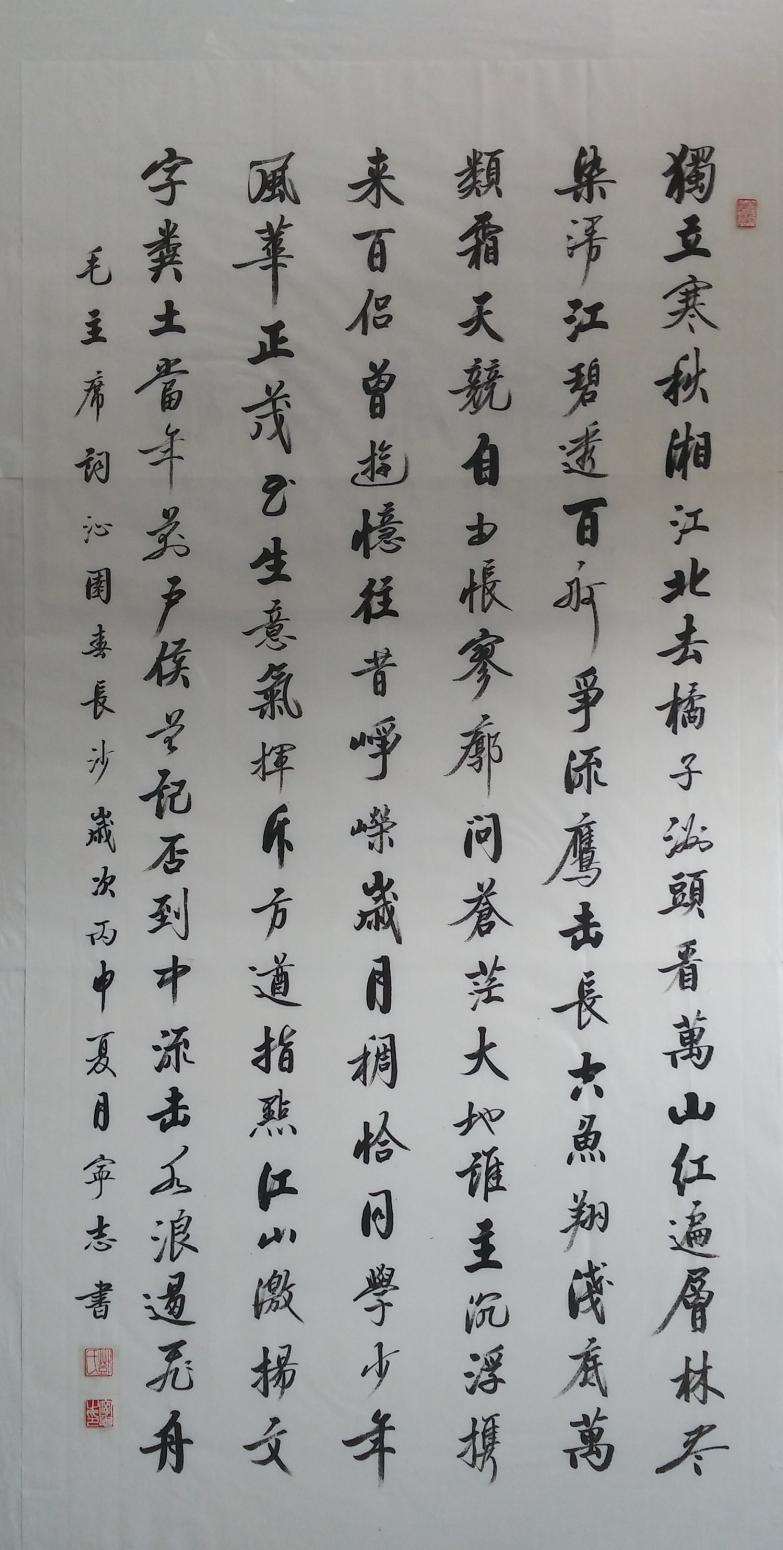 獨立寒秋湘江北去橘子洲頭看萬山红遍層林尽
染漫江碧透百舸爭流鷹击長空魚翔淺底萬
類霜天競自由悵寥廓问蒼茫大地誰主沉浮携
来百侣曾遊憶往昔崢嶸歲月稠恰同學少年
風華正茂书生意氣揮斥方遒指點江山激揚文
字糞土當年萬户侯曾记否到中流击水浪遏飛舟
毛主席詞沁園春長沙歲次丙申夏月寧志書